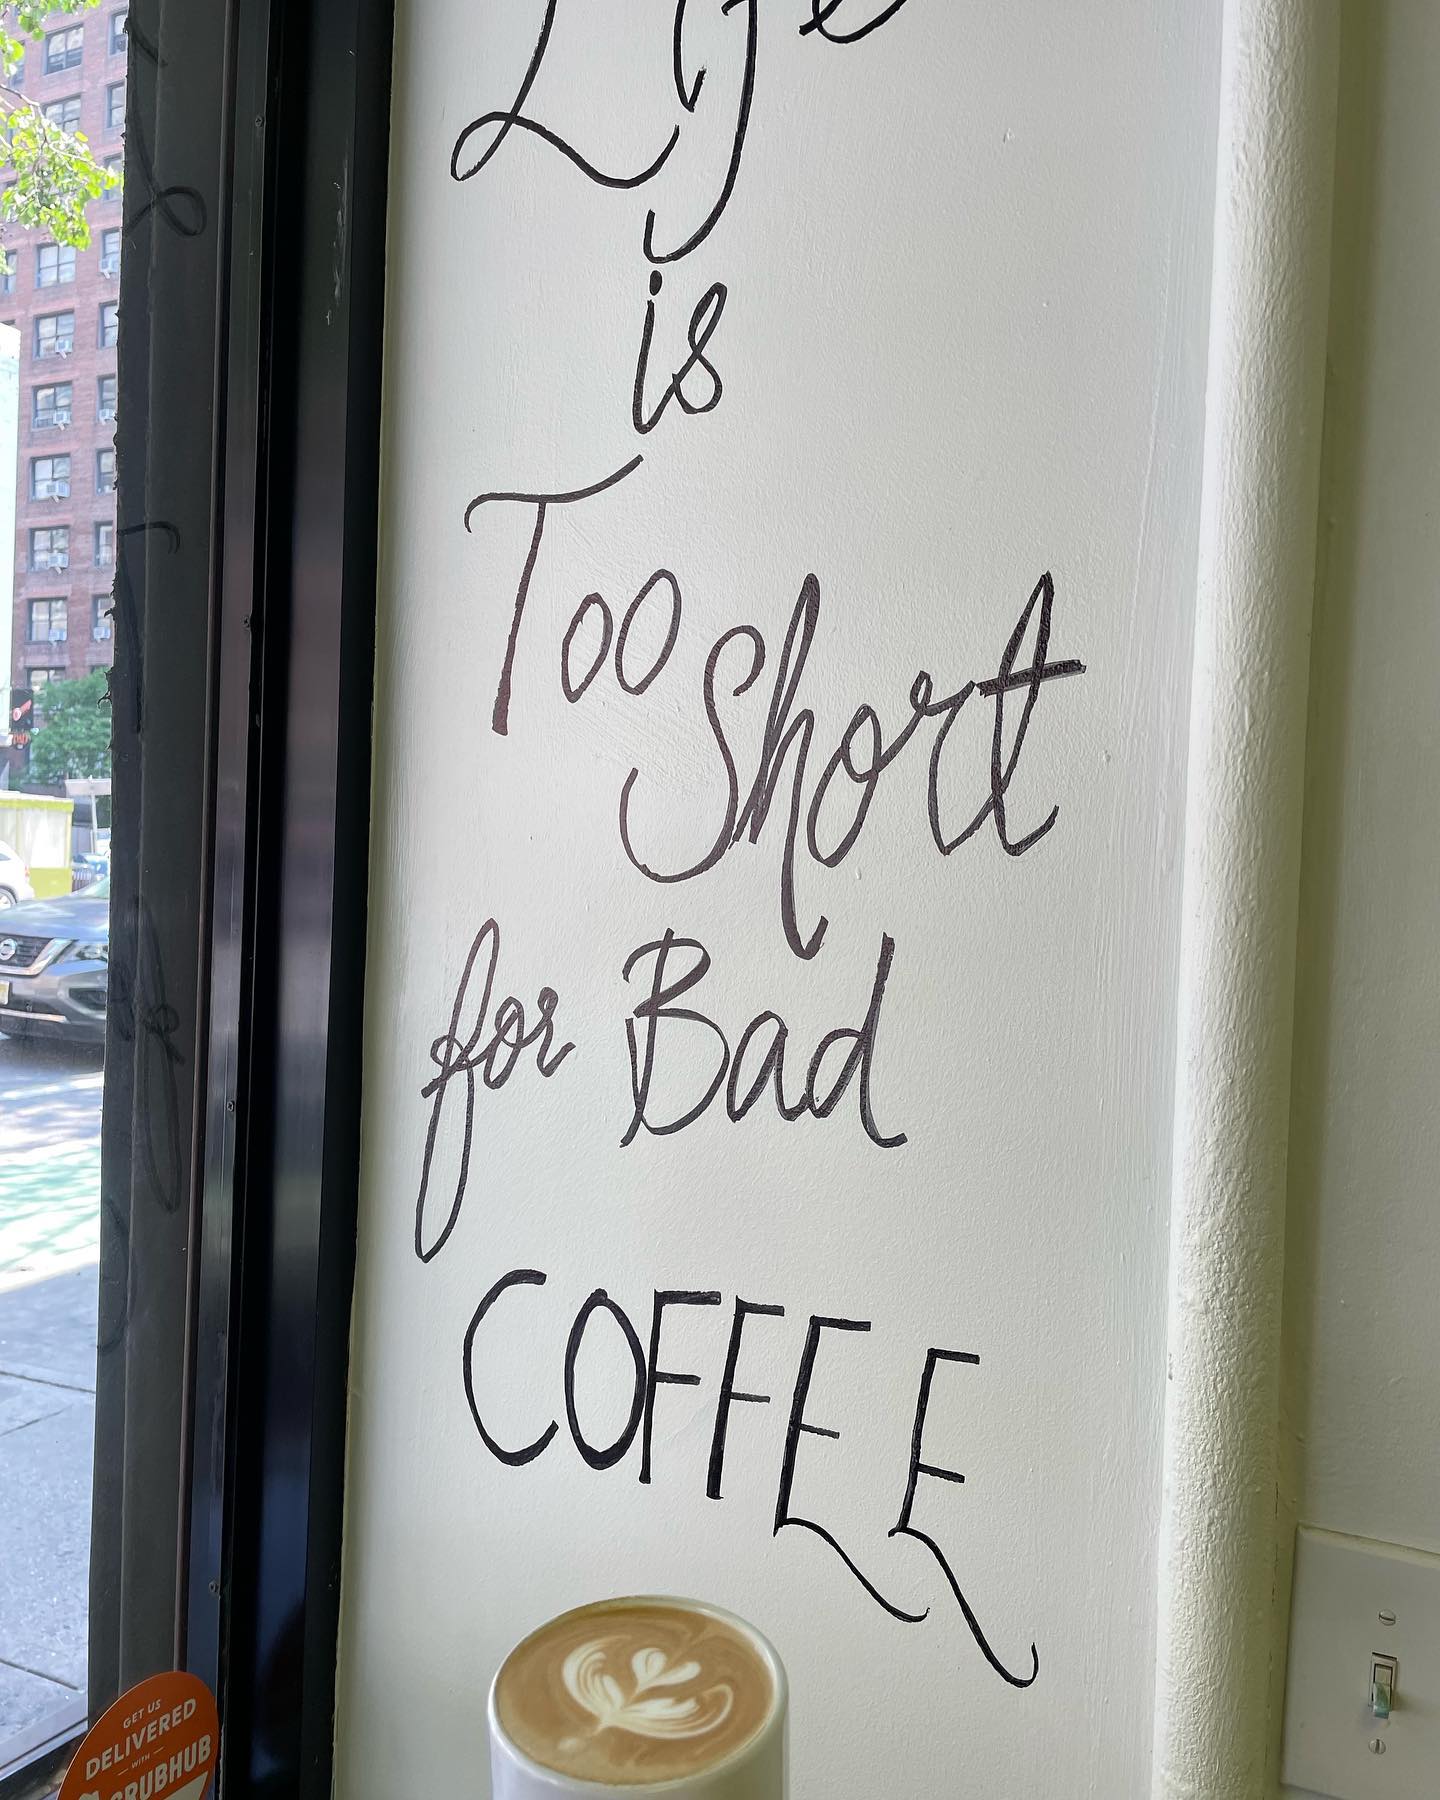 Life
is
Too
Short
for Bad
COFFEE
GET US
DELIVERED
WITH
GRUBHUB